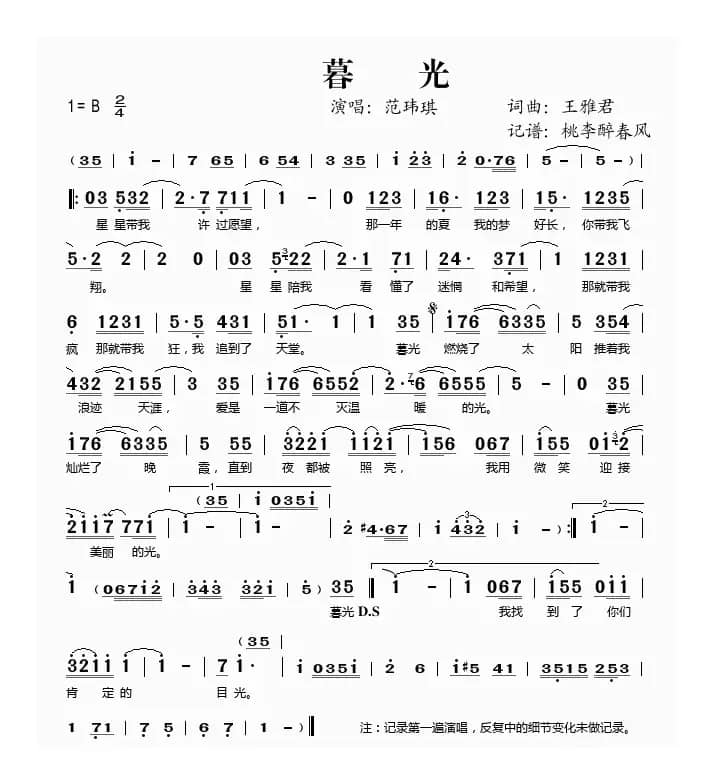 暮 光
1= B 2/4 演唱：范玮琪 词曲：王雅君
记谱：桃李醉春风
(35 | i - | 7 65 | 6 54 | 3 35 | i 23 | 2 0·76 | 5 - | 5 - )
‖: 03 532 | 2·7 711 | 1 - | 0 123 | 16· 123 | 15· 1235
星 星带我 许 过愿望， 那一年 的夏 我的梦 好长，你带我飞
5·2 2 | 2 0 | 03 5322 | 2·1 71 | 24· 371 | 1 1231
翔。 星 星 陪我 看 懂了 迷惘 和希望， 那就带我
6 1231 | 5·5 431 | 51· 1 | 1 35 | i76 6335 | 5 354
疯 那就带我 狂，我 追到了 天堂。 暮光 燃烧了 太 阳 推着我
432 2155 | 3 35 | i76 6552 | 2·76 6555 | 5 - | 0 35
浪迹 天涯， 爱是 一道不 灭温 暖 的光。 暮光
i76 6335 | 5 55 | 322i ii2i | i56 067 | i55 0i32
灿烂了 晚 霞，直到 夜 都被 照 亮， 我用 微 笑 迎 接
1
(35 | i 035i 2
2ii7 77i | i - | i - | 2 #4·67 | i 432 | i - ) :‖ i -
3
美丽 的光。
2
i (067i2 | 343 32i | 5) 35 ‖ i - | i 067 | i55 0ii
暮光 D.S 我找 到 了 你们
(35 |
32ii i | i - | 7 i· | i 035i | 2 6 | i#5 41 | 3515 253
肯 定的 目光。
1 71 | 7 5 | 6 7 | 1 - | 1 - )‖ 注：记录第一遍演唱，反复中的细节变化未做记录。